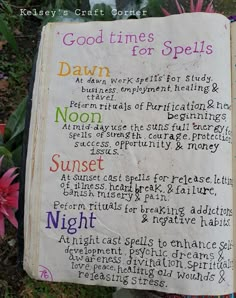 Kelsey's Craft Corner
Good times
for Spells
Dawn
At dawn work spells for study,
business, employment, healing &
travel
Peform rituals of Purification & new
beginnings
Noon
At mid-day use the suns full energy for
spells of strength, courage, protection
success, opportunity, & money
issues.
Sunset
At sunset cast spells for release, letting
of illness, heart break, & failure,
banish misery & pain.
Peform rituals for breaking addictions
& negative habits.
Night
At night cast spells to enhance self
development, psychic dreams &
awareness, divination, spirituality
love, peace, healing old wounds &
releasing stress.